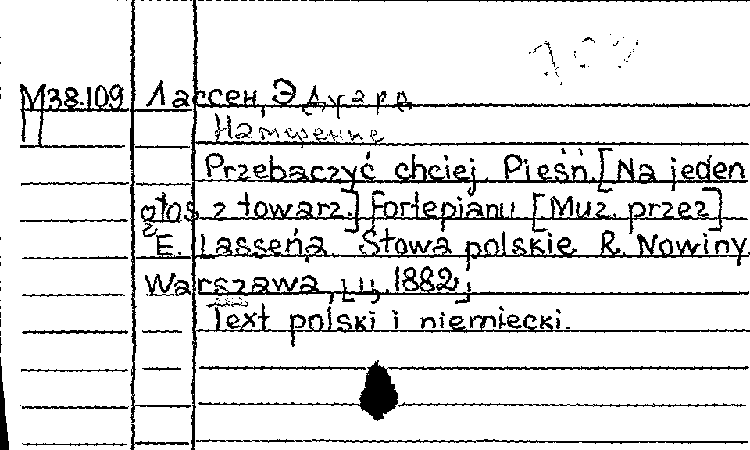 707
М38.109 Лассен, Эдуард
Przebaczyć chciej. Pieśń. [Na jeden
głos z towarz.] fortepianu [Muz. przez]
E. Lassena. Słowa polskie R. Nowiny.
Warszawa, [ц], 1882,
Text polski i niemiecki.